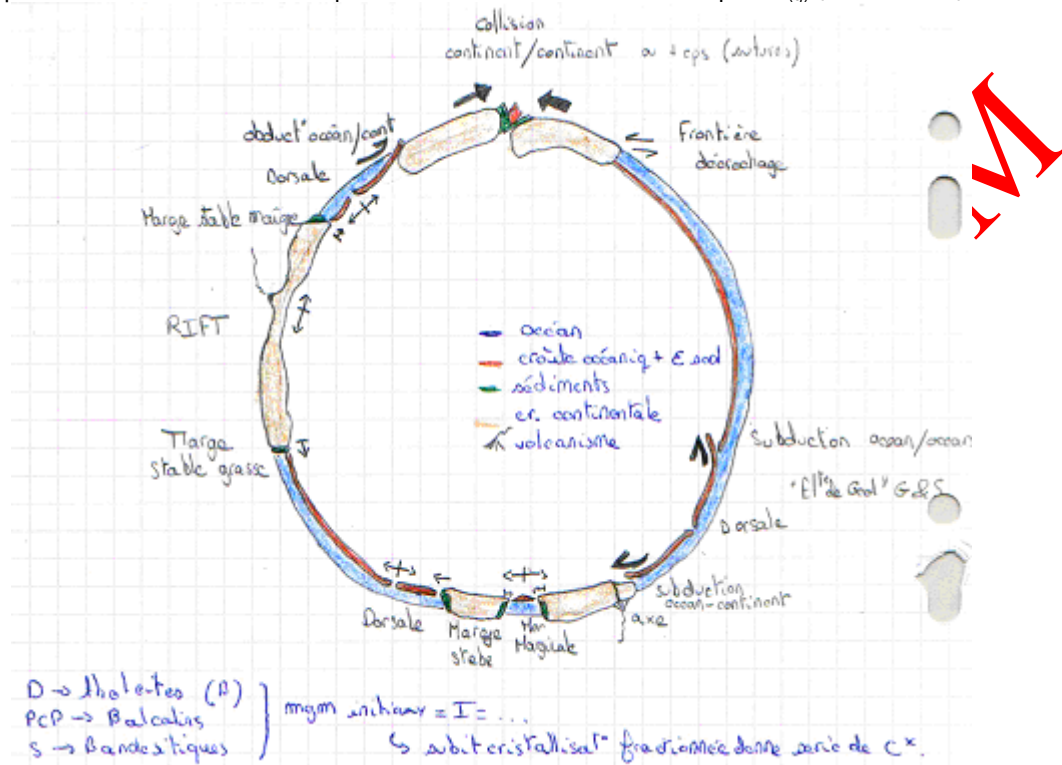 collision
continent/continent ou + cps (sutures)
obduct° océan/cont
Frontière
décrochage
Dorsale
Marge stable maigre
RIFT
océan
croûte océaniq + ε sed
sédiments
cr. continentale
volcanisme
Marge
stable grasse
Subduction océan/océan
"Elts de Géol" G & S
Dorsale
subduction
océan-continent
axe
Dorsale
Marge
stable
Mer
Marginale
D → tholeites (β)
PCP → βalcalins
S → βandésitiques
mgm initiaux = I = ...
↳ subit cristallisat° fractionnée donne serie de Cx.
M